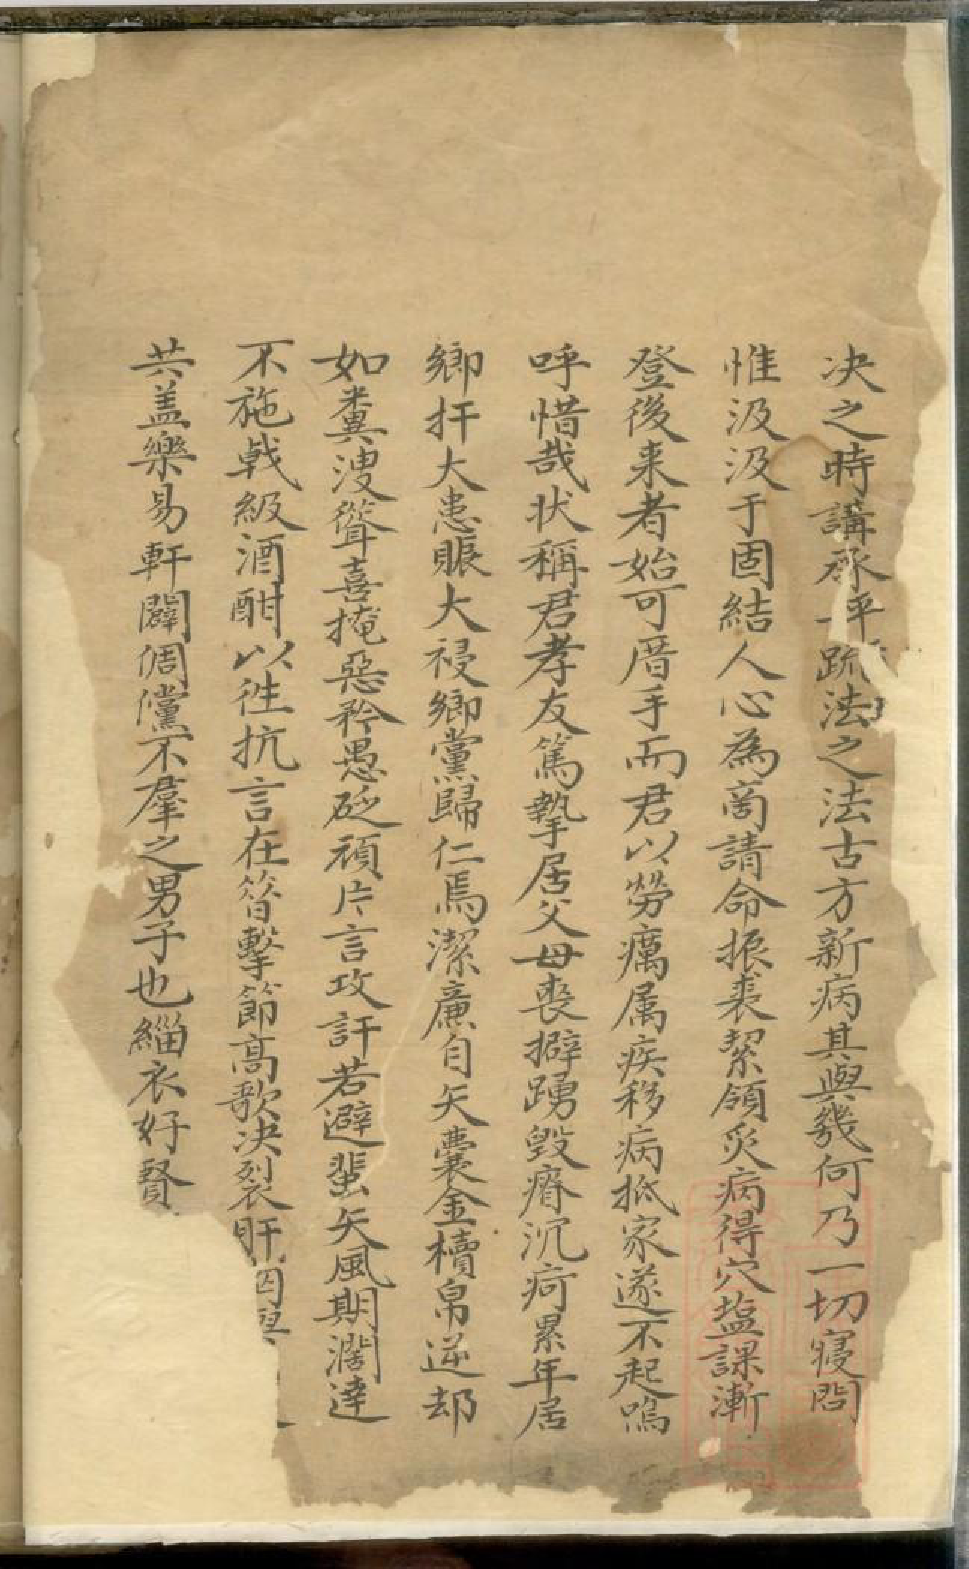 决之時講承平䟽法之法古方新病其與幾何乃一切寝閣
惟汲汲于固結人心為啇請命振裘絜領灸病得穴塩課漸
登後来者始可厝手而君以勞癘属疾移病抵家遂不起嗚
呼惜哉状稱君孝友篤摯居父母丧擗踴毀瘠沉疴累年居
鄉扞大患賑大祲鄉黨歸仁焉潔廉自矢囊金櫝帛逆却
如糞溲聳喜掩惡矜愚砭頑片言攻訐若避蜚矢風期濶達
不施戟級酒酣以徃抗言在昝擊節高歌决裂肝
共盖樂易軒闢倜儻不羣之男子也緇衣好賢